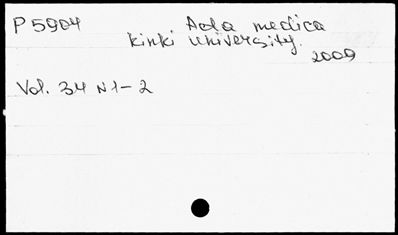 P 5904 Acta medica
Kinki University.
2009
Vol. 34 N 1-2